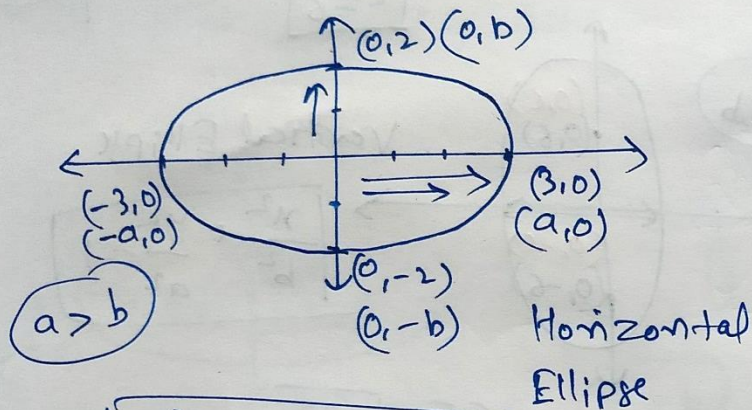 (0,2) (0,b)
(-3,0)
(-a,0)
(3,0)
(a,0)
(0,-2)
(0,-b)
a > b
Horizontal
Ellipse